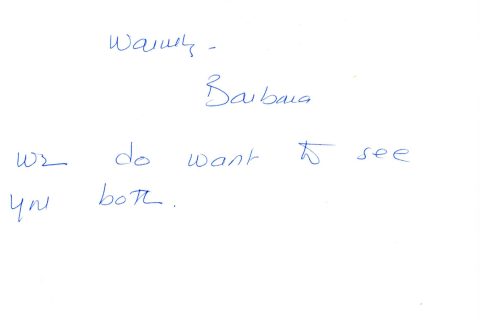 Warmly -
Barbara
We do want to see
you both.